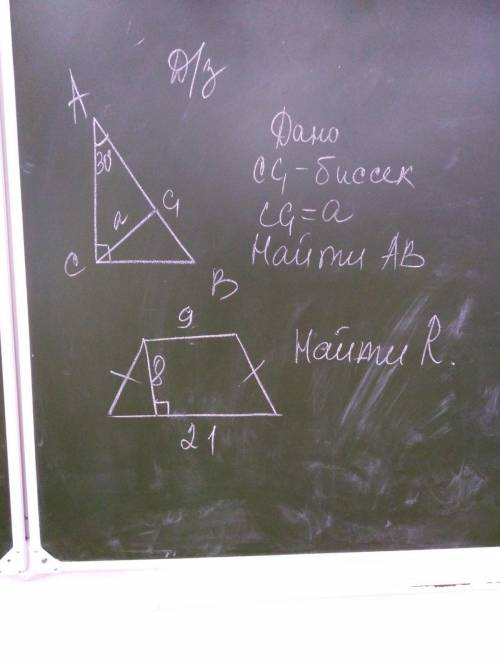 Д/з
A
30
a
C₁
C
B
Дано
CC₁ - биссек
CC₁ = a
Найти AB
9
8
21
Найти R.